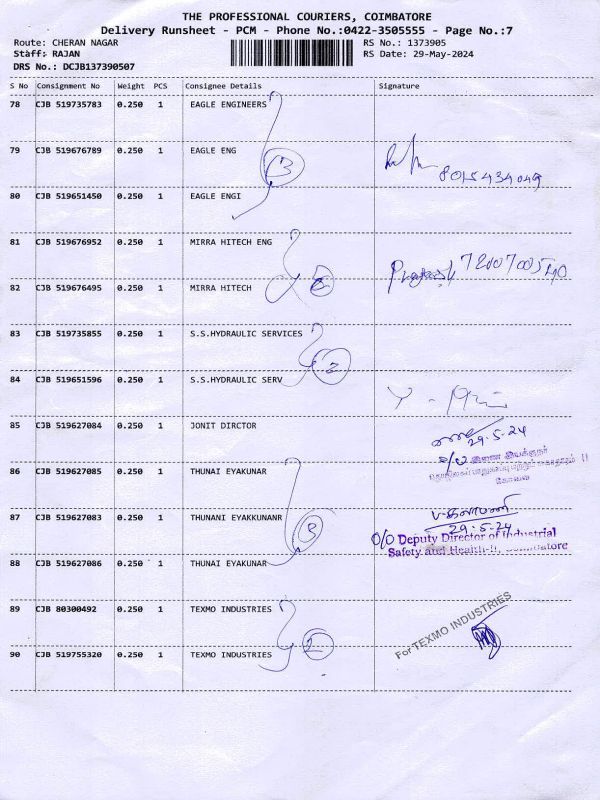 THE PROFESSIONAL COURIERS, COIMBATORE
Delivery Runsheet - PCM - Phone No.:0422-3505555 - Page No.:7
Route: CHERAN NAGAR RS No.: 1373905
Staff: RAJAN RS Date: 29-May-2024
DRS No.: DCJB137390507
S No Consignment No Weight PCS Consignee Details Signature
78 CJB 519735783 0.250 1 EAGLE ENGINEERS
79 CJB 519676789 0.250 1 EAGLE ENG
3
8015434049
80 CJB 519651450 0.250 1 EAGLE ENGI
81 CJB 519676952 0.250 1 MIRRA HITECH ENG
82 CJB 519676495 0.250 1 MIRRA HITECH
83 CJB 519735855 0.250 1 S.S.HYDRAULIC SERVICES
2
84 CJB 519651596 0.250 1 S.S.HYDRAULIC SERV
85 CJB 519627084 0.250 1 JONIT DIRCTOR
29.5.24
இணை இயக்குநர்
86 CJB 519627085 0.250 1 THUNAI EYAKUNAR
கோவை
87 CJB 519627083 0.250 1 THUNANI EYAKKUNANR
3
29.5.24
O/O Deputy Director of Industrial
Safety and Health-II, Coimbatore
88 CJB 519627086 0.250 1 THUNAI EYAKUNAR
89 CJB 80300492 0.250 1 TEXMO INDUSTRIES
For TEXMO INDUSTRIES
2
90 CJB 519755320 0.250 1 TEXMO INDUSTRIES